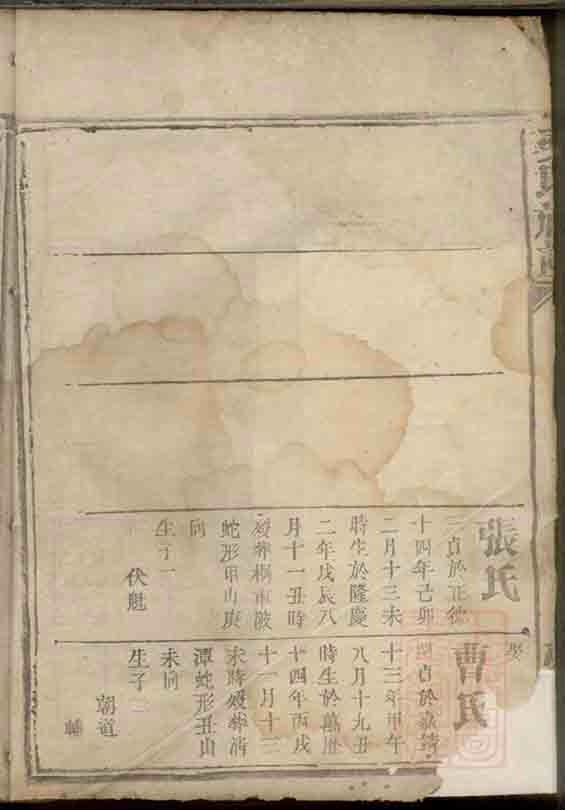 張氏
貞於正德
十四年己卯
二月十三未
時生於隆慶
二年戊辰八
月十一丑時
蛇形甲山庚
向
生子一
伏魁
曹氏
貞於嘉靖
十三年甲午
八月十九丑
時生於萬歷
十四年丙戌
十一月十三
未時媛葬清
潭蛇形丑山
未向
生子二
朝道
輔